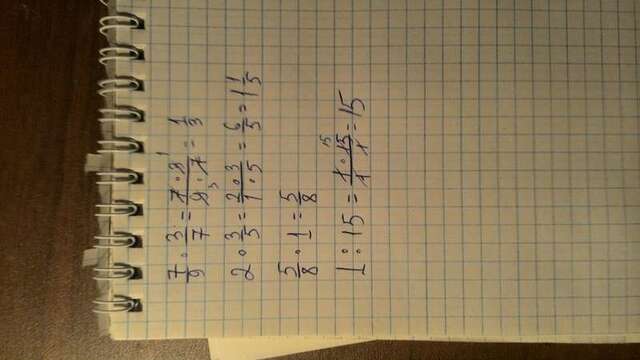 7/9 · 3/7 = 7·3/9·7 = 1/3
2 · 3/5 = 2·3/1·5 = 6/5 = 1 1/5
5/8 · 1 = 5/8
1 : 15 = 1·15/1·1 = 15